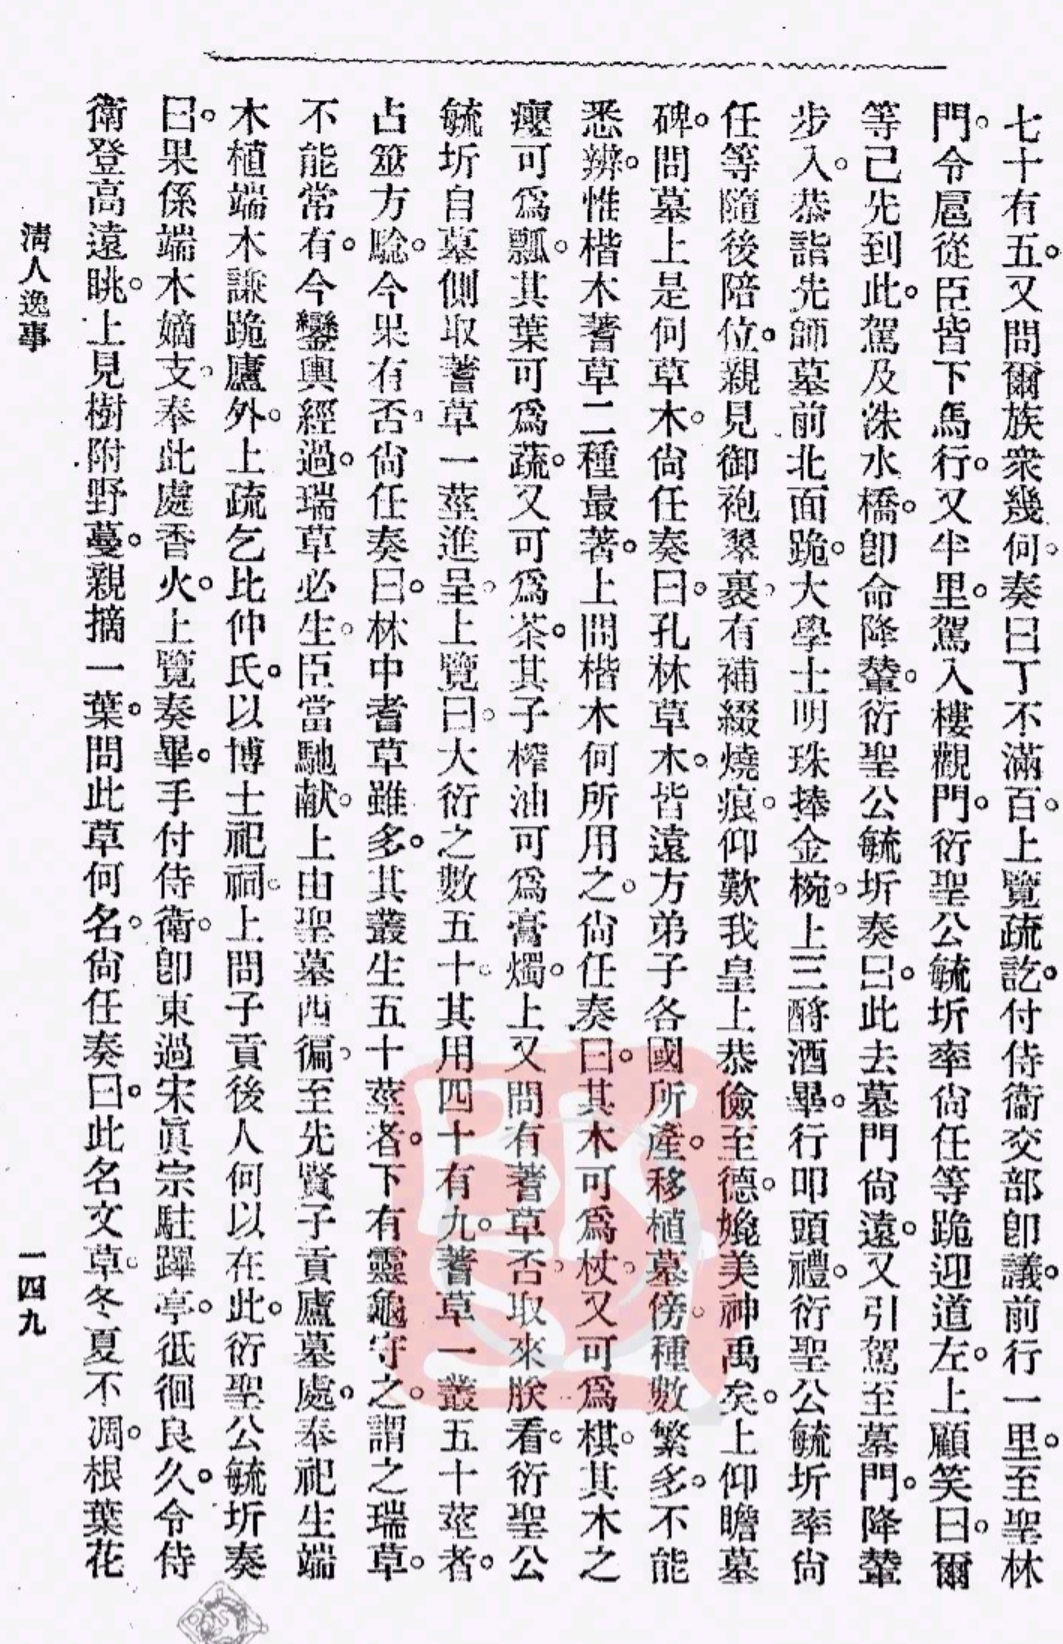 七十有五。又問爾族衆幾何。奏曰丁不滿百。上覽疏訖。付侍衞交部卽議。前行一里。至聖林
門。令扈從臣皆下馬行。又半里。駕入樓觀門。衍聖公毓圻率尙任等跪迎道左。上顧笑曰。爾
等已先到此。駕及洙水橋。卽命降輦。衍聖公毓圻奏曰。此去墓門尙遠。又引駕至墓門。降輦
步入。恭詣先師墓前北面跪。大學士明珠捧金椀。上三酹酒畢。行叩頭禮。衍聖公毓圻率尙
任等隨後陪位。親見御袍翠裹。有補綴燒痕。仰歎我皇上恭儉至德。媲美神禹矣。上仰瞻墓
碑。問墓上是何草木。尙任奏曰。孔林草木。皆遠方弟子各國所產。移植墓傍。種數繁多。不能
悉辨。惟楷木蓍草二種最著。上問楷木何所用之。尙任奏曰。其木可爲杖。又可爲棋。其木之
癭可爲瓢。其葉可爲蔬。又可爲茶。其子榨油可爲膏燭。上又問有蓍草否。取來朕看。衍聖公
毓圻自墓側取蓍草一莖進呈。上覽曰。大衍之數五十。其用四十有九。蓍草一叢五十莖者。
占筮方驗。今果有否。尙任奏曰。林中耆草雖多。其叢生五十莖者。下有靈龜守之。謂之瑞草。
不能常有。今鑾輿經過。瑞草必生。臣當馳献。上由聖墓西徧。至先賢子貢廬墓處。奉祀生端
木植端木謙跪廬外。上疏乞比仲氏。以博士祀祠。上問子貢後人何以在此。衍聖公毓圻奏
曰。果係端木嫡支。奉此處香火。上覽奏畢。手付侍衞。卽東過宋眞宗駐蹕亭。徘徊良久。令侍
衞登高遠眺。上見樹附野蔓。親摘一葉。問此草何名。尙任奏曰。此名文草。冬夏不凋。根葉花
淸人逸事
一四九